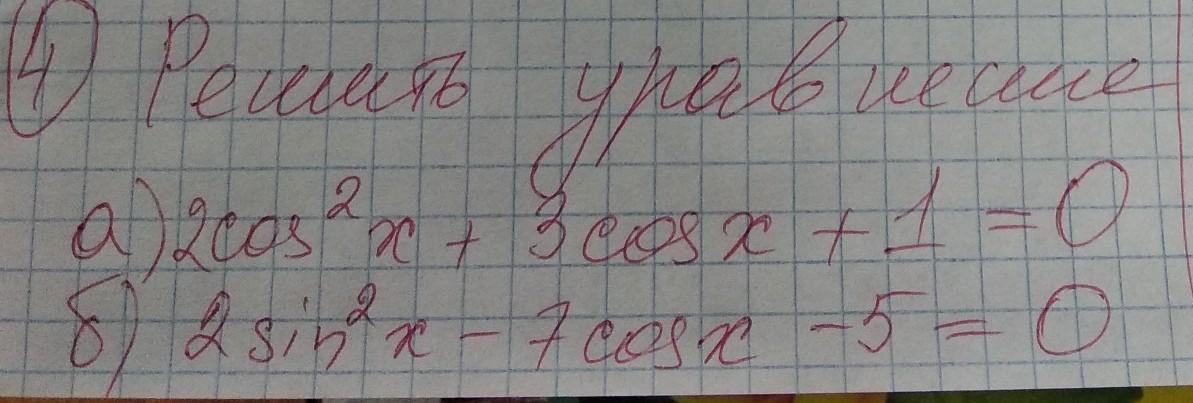 ④ Решить уравнение
а) 2cos²x + 3cosx + 1 = 0
б) 2sin²x - 7cosx - 5 = 0